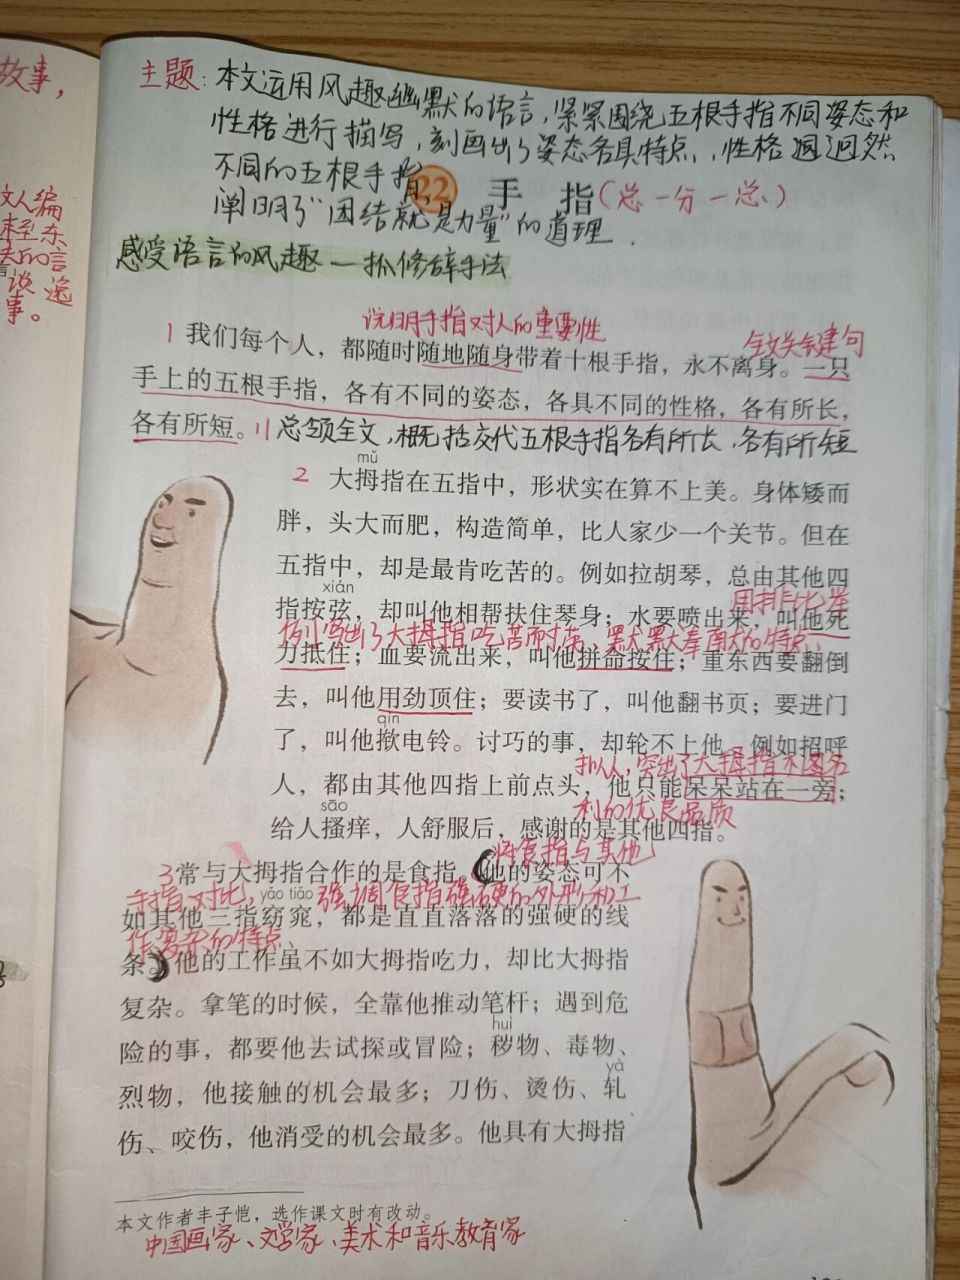 故事，
文人编
东
的言
谈逸
事。
主题：本文运用风趣幽默的语言，紧紧围绕五根手指不同姿态和
性格进行描写，刻画出了姿态各具特点，性格迥然
不同的五根手指，
22 手 指（总一分一总）
阐明了“团结就是力量”的道理．
感受语言的风趣—抓修辞手法
说明手指对人的重要性
全文关键句
1 我们每个人，都随时随地随身带着十根手指，永不离身。一只
手上的五根手指，各有不同的姿态，各具不同的性格，各有所长，
各有所短。11总领全文，概括交代五根手指各有所长，各有所短
mǔ
2 大拇指在五指中，形状实在算不上美。身体矮而
胖，头大而肥，构造简单，比人家少一个关节。但在
五指中，却是最肯吃苦的。例如拉胡琴，总由其他四
xián
用排比举
指按弦，却叫他相帮扶住琴身；水要喷出来，叫他死
例写出了大拇指吃苦而耐劳、默默奉献的特点、
力抵住；血要流出来，叫他拼命按住；重东西要翻倒
去，叫他用劲顶住；要读书了，叫他翻书页；要进门
qìn
了，叫他揿电铃。讨巧的事，却轮不上他。例如招呼
拟人，突出了大拇指不图名
人，都由其他四指上前点头，他只能呆呆站在一旁；
sāo
利的优良品质
给人搔痒，人舒服后，感谢的是其他四指。
将食指与其他
3常与大拇指合作的是食指。他的姿态可不
手指对比，强调食指强硬的外形和工
yǎo tiǎo
如其他三指窈窕，都是直直落落的强硬的线
作复杂的特点、
条。他的工作虽不如大拇指吃力，却比大拇指
复杂。拿笔的时候，全靠他推动笔杆；遇到危
险的事，都要他去试探或冒险；秽物、毒物、
huì
烈物，他接触的机会最多；刀伤、烫伤、轧
yà
伤、咬伤，他消受的机会最多。他具有大拇指
本文作者丰子恺，选作课文时有改动。
中国画家、文学家、美术和音乐教育家